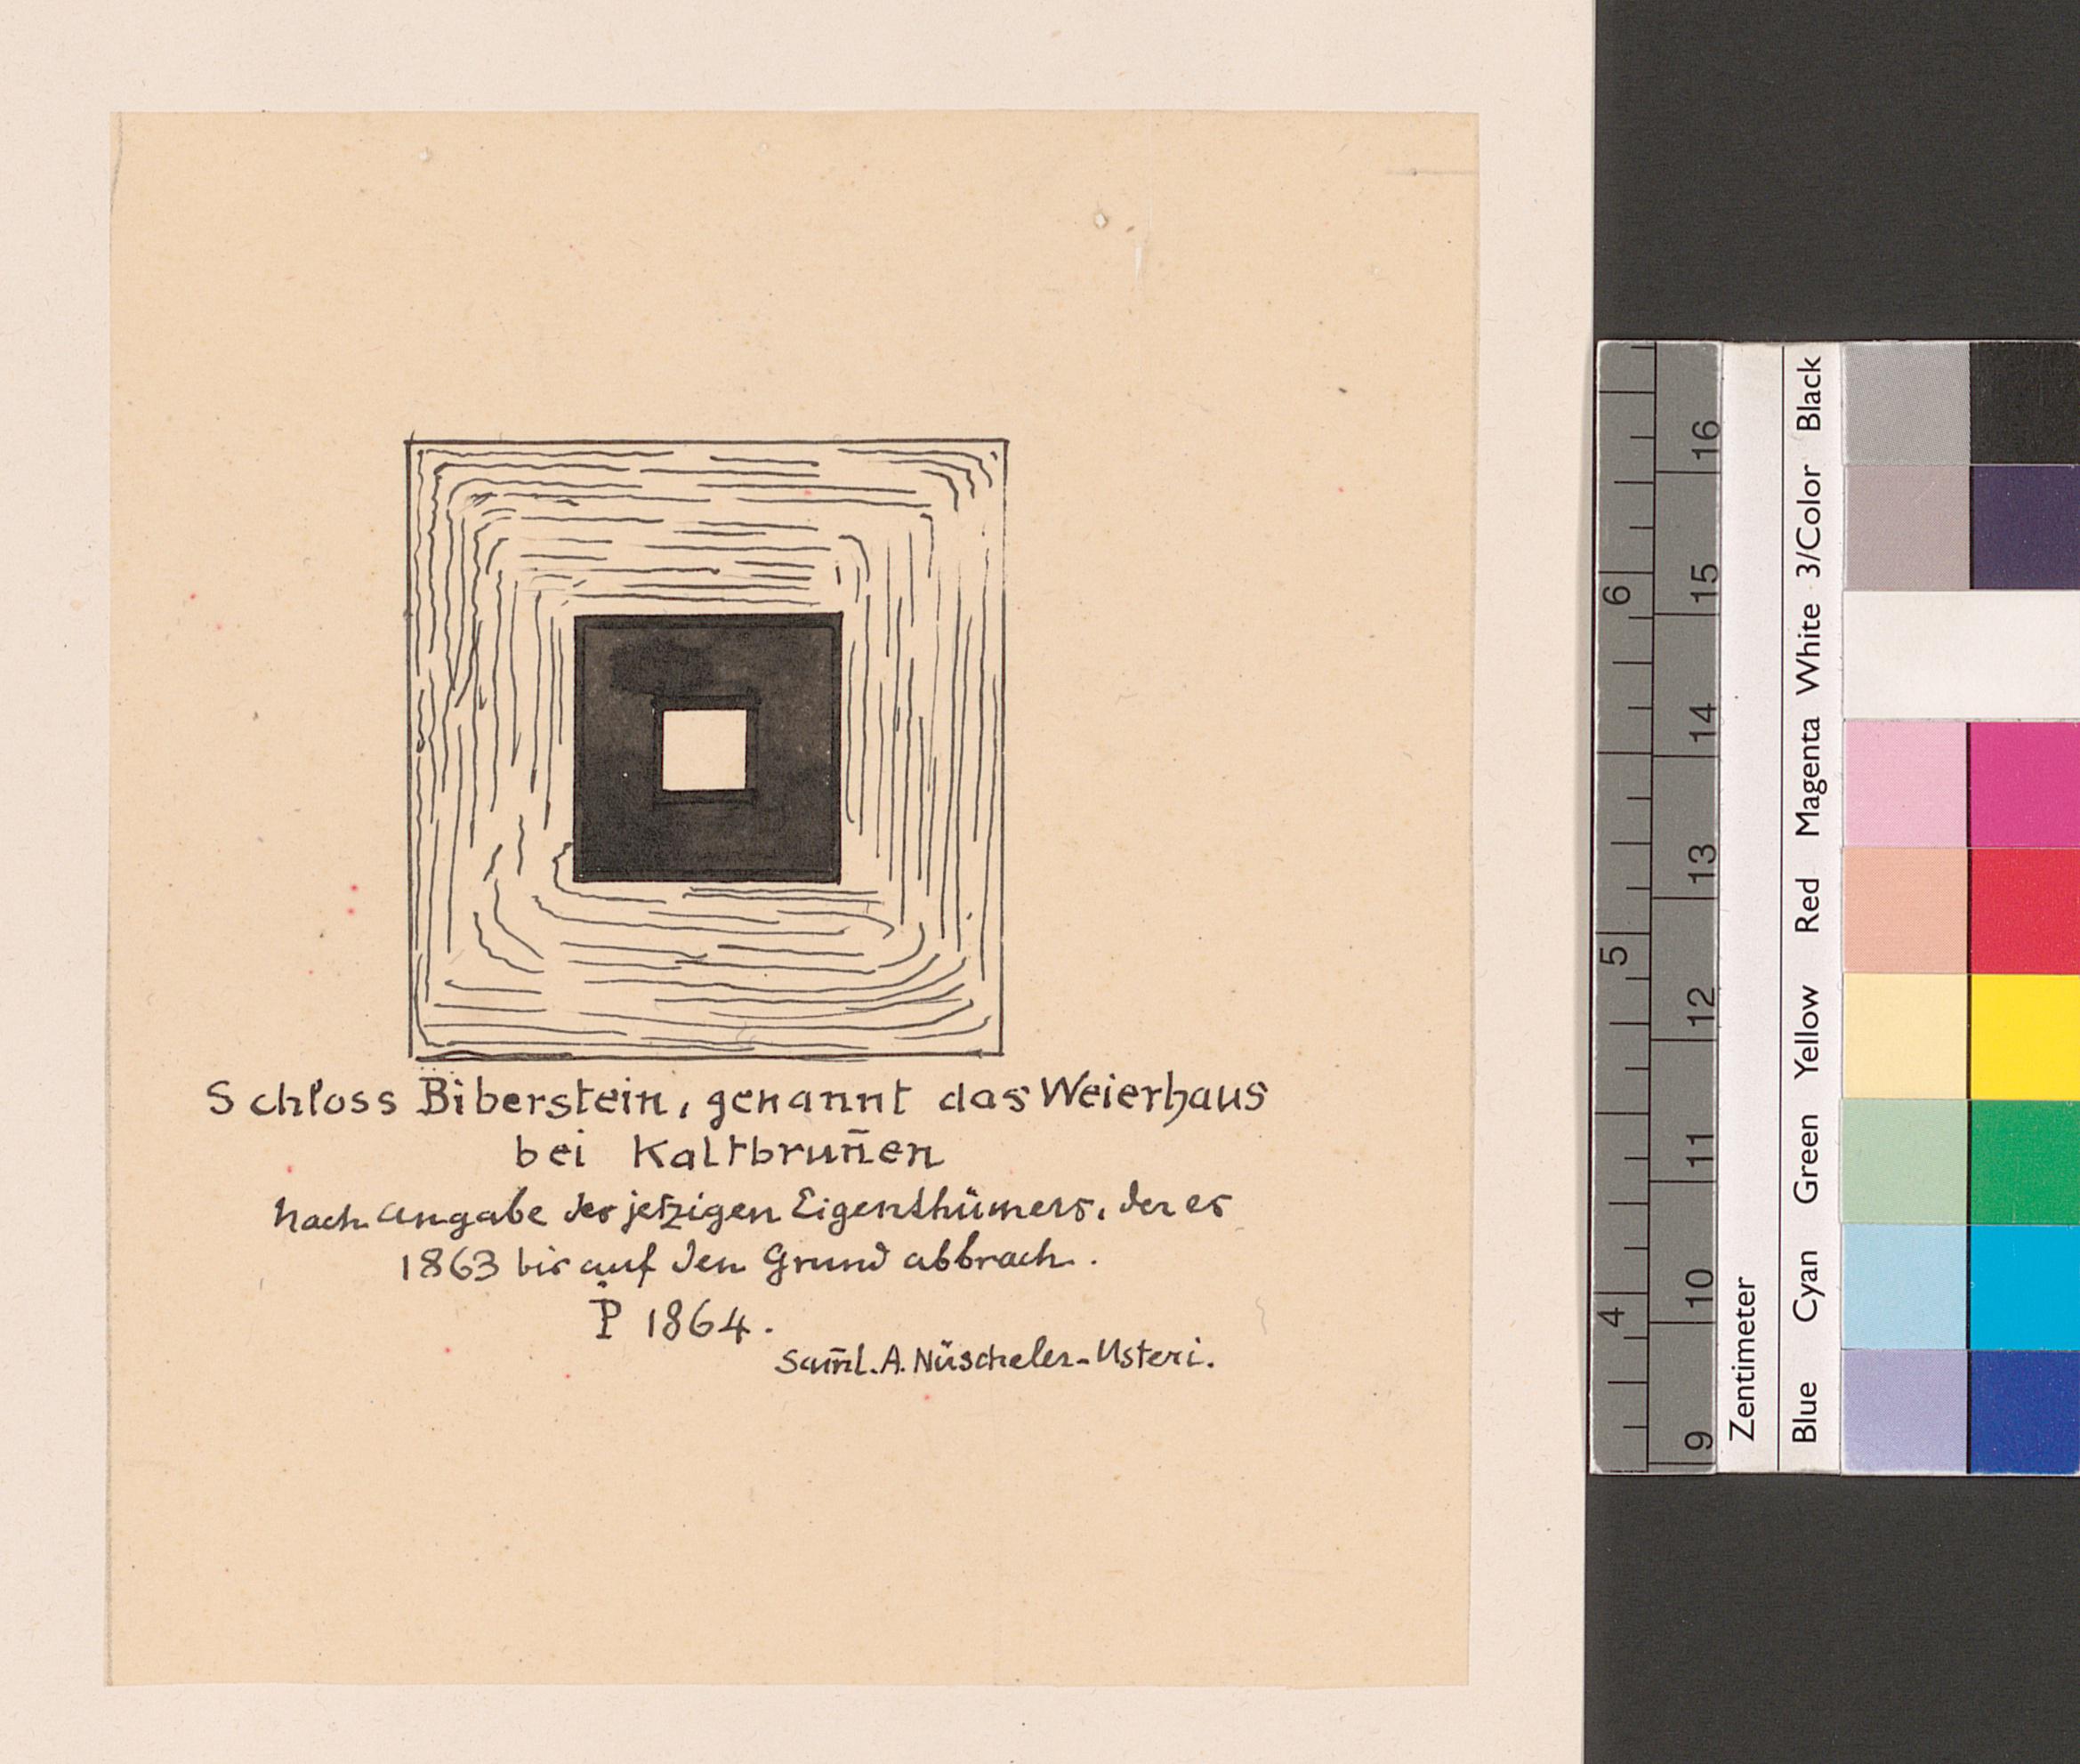 Schloss Biberstein, genannt das Weierhaus
bei Kaltbrun̄en
Nach Angabe des jetzigen Eigenthümers, der es
1863 bis auf den Grund abbrach.
P 1864.
Sam̄l. A. Nüscheler-Usteri.
16
15
14
13
12
11
10
9
6
5
4
Zentimeter
Blue Cyan Green Yellow Red Magenta White 3/Color Black